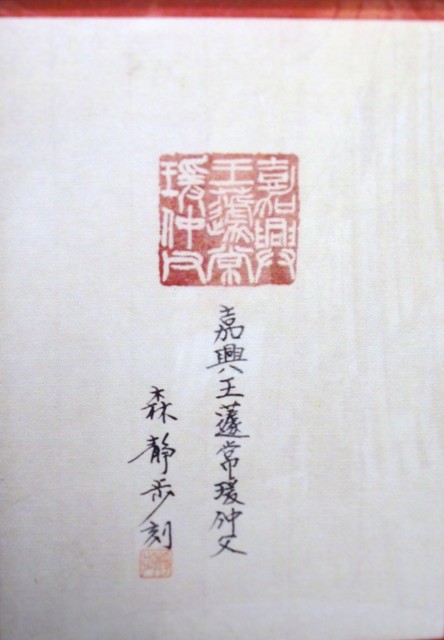 嘉興
王蘧常
瑗仲父
嘉興王蘧常瑗仲父
森静歩刻